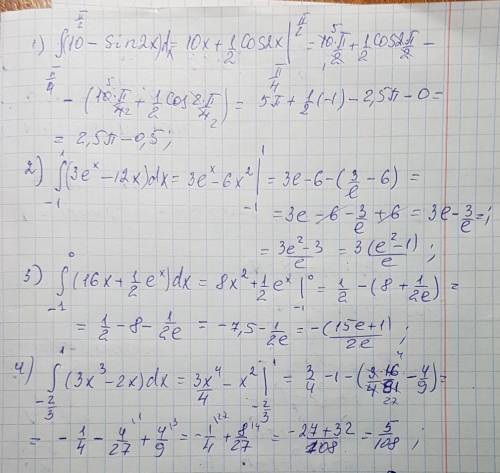 1) ∫_{π/4}^{π/2} (10 - sin2x)dx = 10x + 1/2 cos2x |_{π/4}^{π/2} = 10·π/2 + 1/2 cos2π/2 -
- (10·π/4 + 1/2 cos2·π/4) = 5π + 1/2(-1) - 2,5π - 0 =
= 2,5π - 0,5;
2) ∫_{-1}^{1} (3e^x - 12x)dx = 3e^x - 6x^2 |_{-1}^{1} = 3e - 6 - (3/e - 6) =
= 3e - 6 - 3/e + 6 = 3e - 3/e =
= (3e^2 - 3)/e = 3(e^2 - 1)/e ;
3) ∫_{-1}^{0} (16x + 1/2 e^x)dx = 8x^2 + 1/2 e^x |_{-1}^{0} = 1/2 - (8 + 1/2e) =
= 1/2 - 8 - 1/2e = -7,5 - 1/2e = -(15e+1)/2e ;
4) ∫_{-2/3}^{1} (3x^3 - 2x)dx = 3x^4/4 - x^2 |_{-2/3}^{1} = 3/4 - 1 - (3·16/4·81 - 4/9) =
= -1/4 - 4/27 + 4/9 = -1/4 + 8/27 = (-27+32)/108 = 5/108 ;